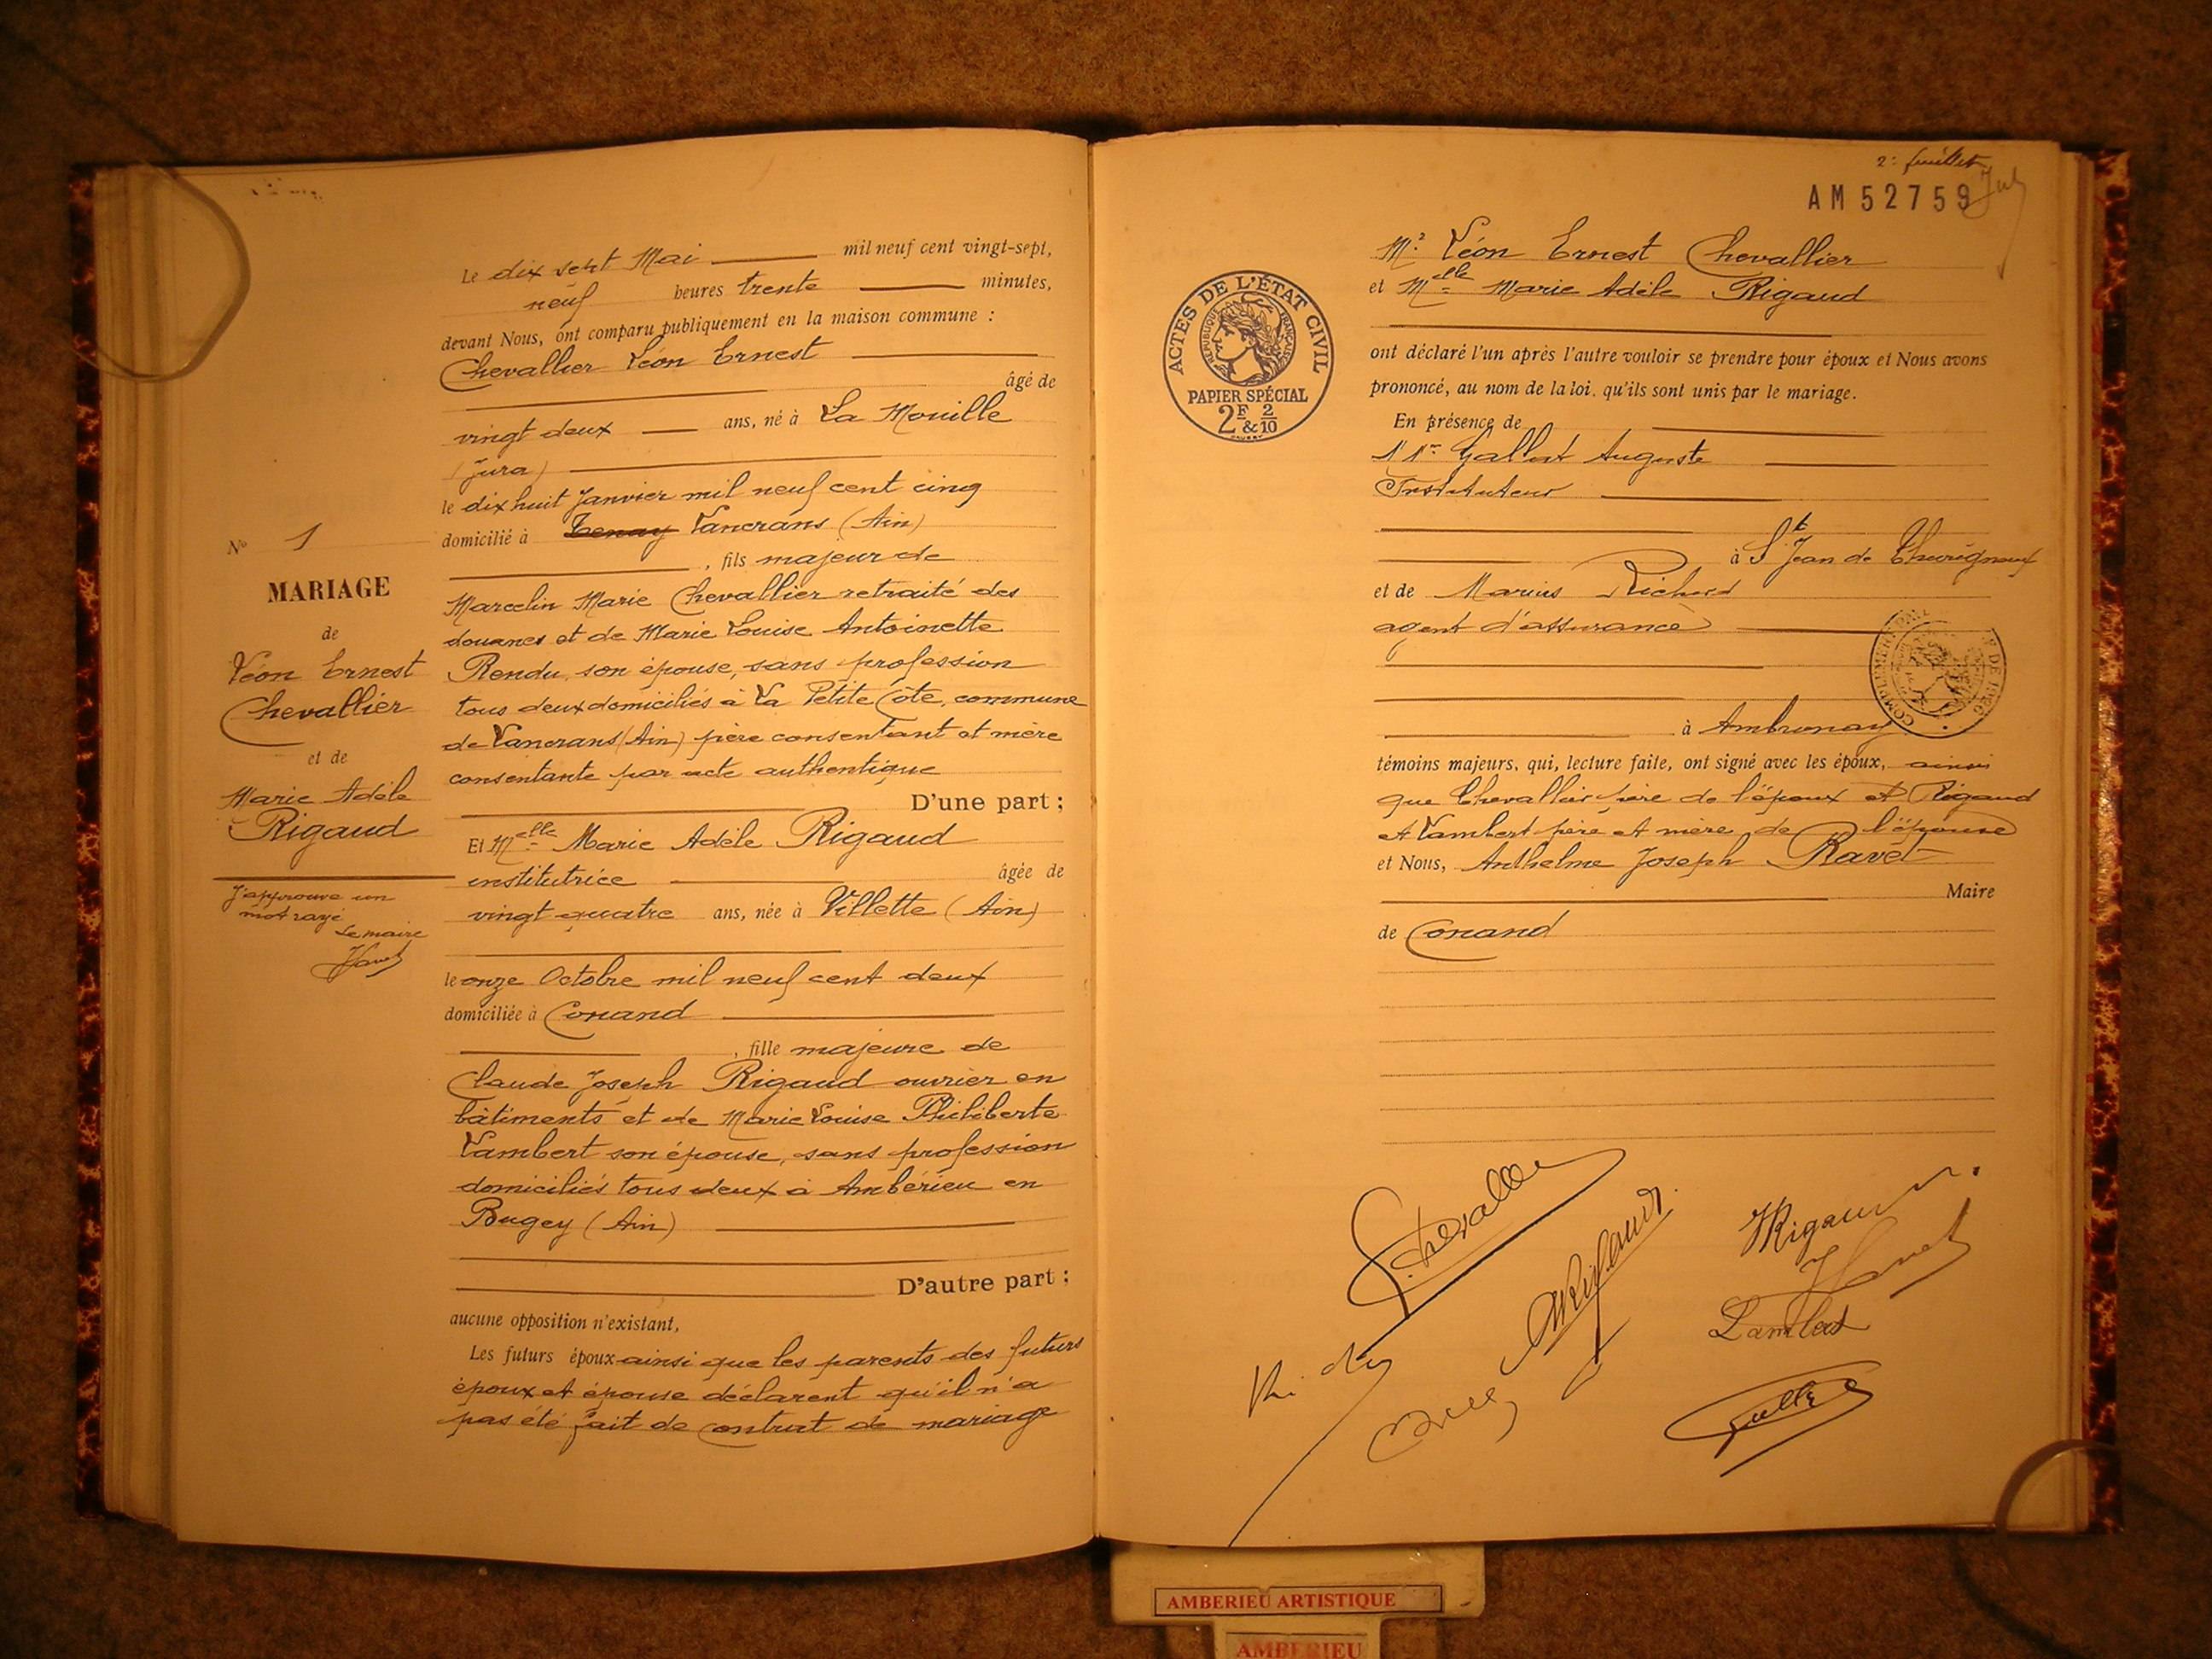 Le dix sept Mai mil neuf cent vingt-sept,
neuf heures trente minutes,
devant Nous, ont comparu publiquement en la maison commune :
Chevallier Léon Ernest
âgé de
vingt deux ans, né à La Mouille
(Jura)
le dix huit Janvier mil neuf cent cinq
domicilié à Tenay Lancrans (Ain)
, fils majeur de
Marcelin Marie Chevallier retraité des
douanes et de Marie Louise Antoinette
Rendu, son épouse, sans profession
tous deux domiciliés à La Petite Côte, commune
de Lancrans (Ain) père consentant et mère
consentante par acte authentique
D'une part ;
Et Melle Marie Adèle Rigaud
institutrice âgée de
vingt quatre ans, née à Villette (Ain)
le onze Octobre mil neuf cent deux
domiciliée à Conand
, fille majeure de
Claude Joseph Rigaud ouvrier en
bâtiments et de Marie Louise Philiberte
Lambert son épouse, sans profession
domiciliés tous deux à Ambérieu en
Bugey (Ain)
D'autre part ;
aucune opposition n'existant,
Les futurs époux ainsi que les parents des futurs
époux et épouse déclarent qu'il n'a
pas été fait de contrat de mariage
No 1
MARIAGE
de
Léon Ernest
Chevallier
et de
Marie Adèle
Rigaud
J'approuve un
mot rayé
Le maire
JRavet
2e feuillet
AM 52759
ACTES DE L'ÉTAT CIVIL
RÉPUBLIQUE FRANÇAISE
PAPIER SPÉCIAL
2F & 2/10
Mr Léon Ernest Chevallier
et Melle Marie Adèle Rigaud
ont déclaré l'un après l'autre vouloir se prendre pour époux et Nous avons
prononcé, au nom de la loi, qu'ils sont unis par le mariage.
En présence de
Mr Gallat Auguste
Instituteur
à St Jean de Thurigneux
et de Marius Richard
agent d'assurance
à Ambronay
témoins majeurs, qui, lecture faite, ont signé avec les époux, ainsi
que Chevallier père de l'époux et Rigaud
et Lambert père et mère de l'épouse
et Nous, Anthelme Joseph Ravet
Maire
de Conand
Chevallier
MRigaud
JRigaud
JRavet
Lambert
AMBERIEU ARTISTIQUE
AMBERIEU